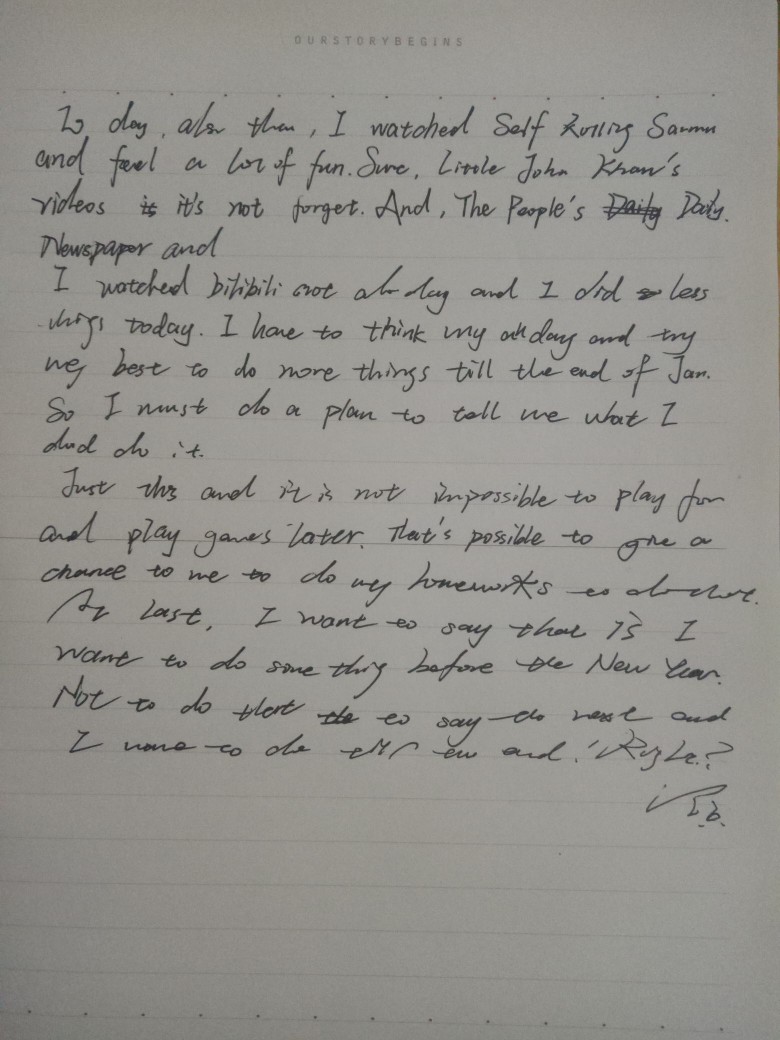 OURSTORYBEGINS
To day, also then, I watched Self Rolling
and feel a lot of fun. Sure, Little John Khaw's
videos it's not forget. And, The People's Daily.
Newspaper and
I watched bilibili not all day and I did less
things today. I have to think my all day and try
my best to do more things till the end of Jan.
So I must do a plan to tell me what I
do it.
Just this and it is not impossible to play fun
and play games later. That's possible to give a
chance to me to do my homeworks
At last, I want to say that is I
want to do some thing before the New Year.
Not to do that to say do and
I to do and